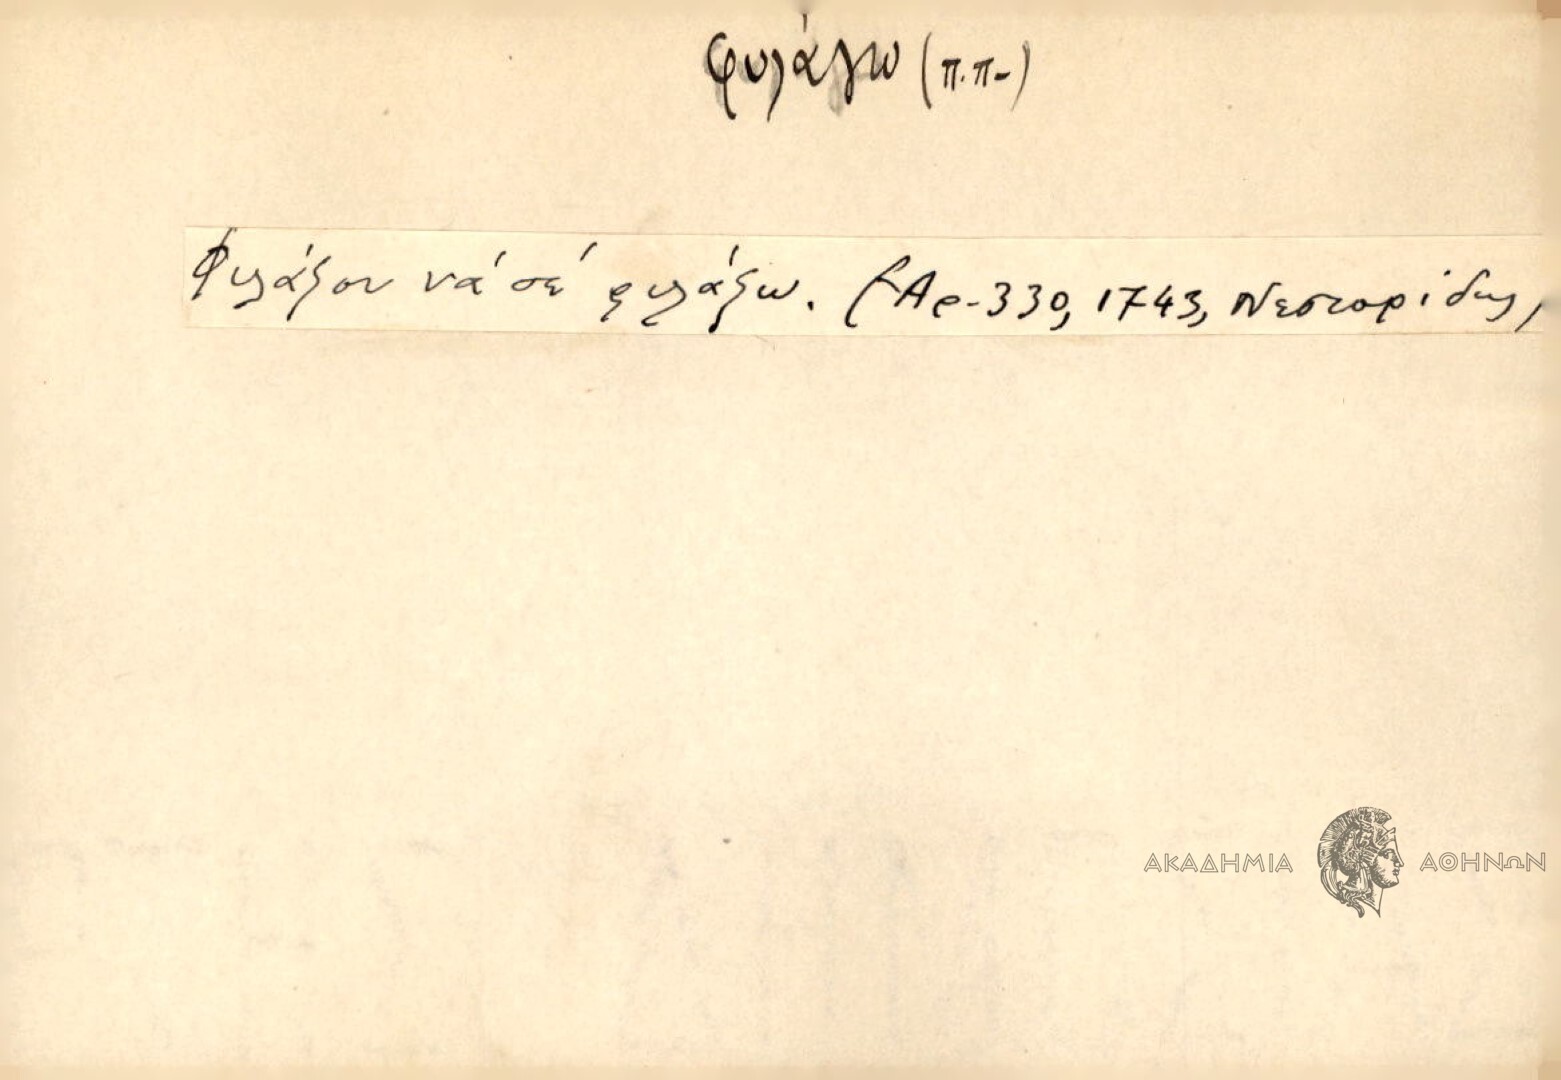 φυλάγω (π.π-)
Φυλάξου νά σέ φυλάξω. (Αρ-330, 1743, Νεστορίδης,
ΑΚΑΔΗΜΙΑ ΑΘΗΝΩΝ